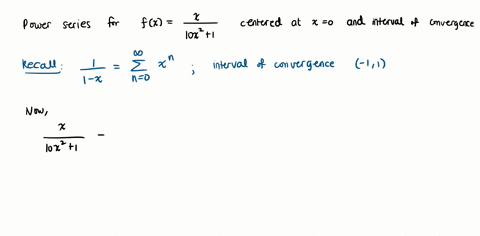 Power series for f(x) = x/(10x²+1) centered at x=0 and interval of convergence
Recall: 1/(1-x) = ∑_{n=0}^{∞} xⁿ ; interval of convergence (-1,1)
Now,
x/(10x²+1) =